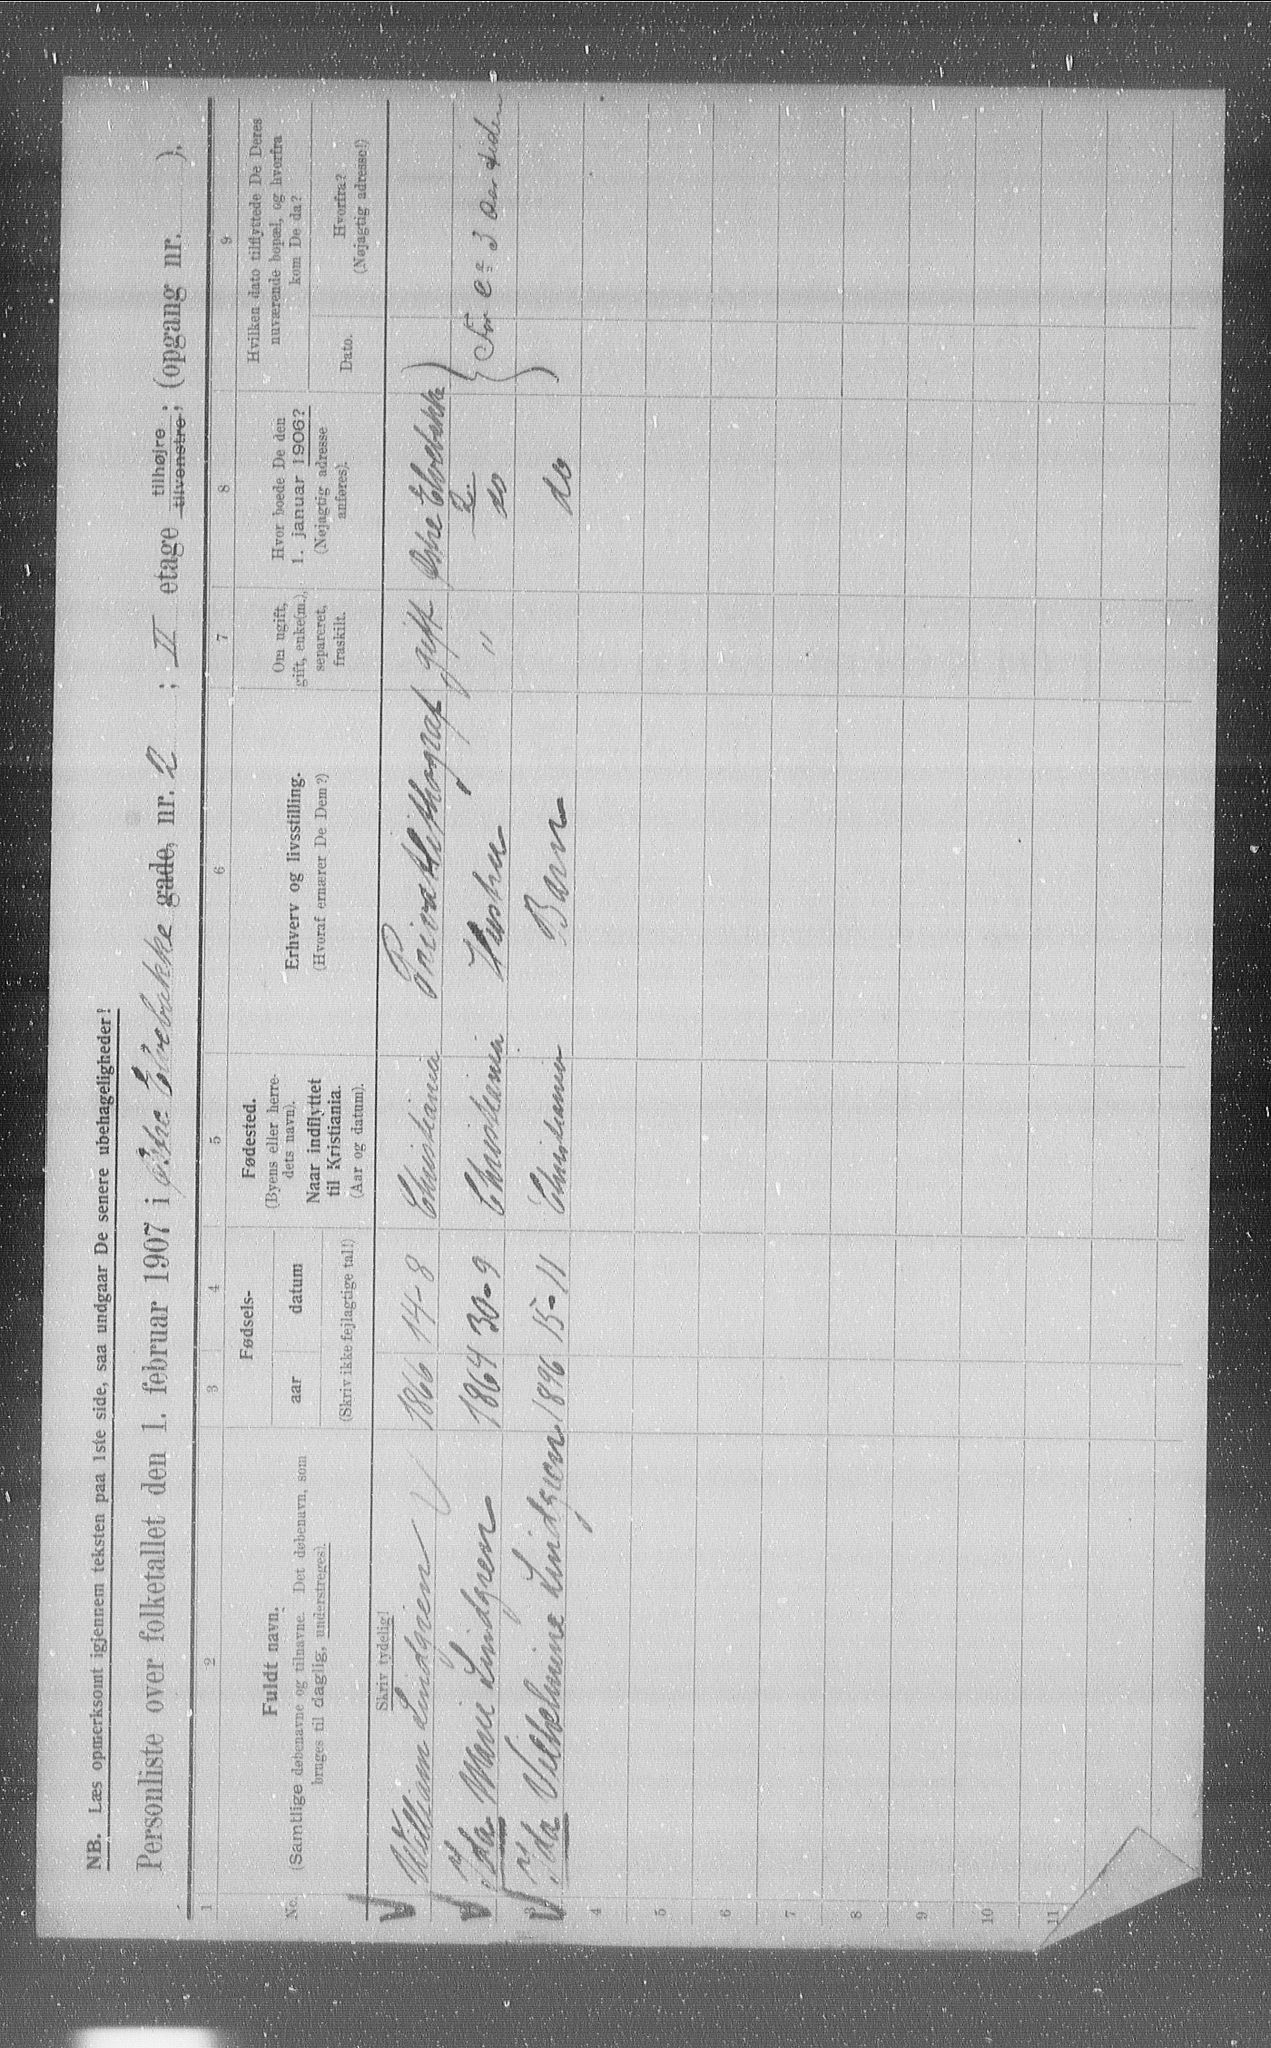 NB. Læs opmerksomt igjennem teksten paa 1ste side, saa undgaar De senere ubehageligheder!
Personliste over folketallet den 1. februar 1907 i Østre Elvebakke gade, nr. 2 ; II etage tilhøjre; tilvenstre; (opgang nr. ).
1 2 3 4 5 6 7 8 9
No.
Fuldt navn.
(Samtlige døbenavne og tilnavne. Det døbenavn, som
bruges til daglig, understreges).
Skriv tydelig!
Fødsels-
aar datum
(Skriv ikke fejlagtige tal!)
Fødested.
(Byens eller herre-
dets navn).
Naar indflyttet
til Kristiania.
(Aar og datum).
Erhverv og livsstilling.
(Hvoraf ernærer De Dem?)
Om ugift,
gift, enke(m.),
separeret,
fraskilt.
Hvor boede De den
1. januar 1906?
(Nøjagtig adresse
anføres).
Hvilken dato tilflyttede De Deres
nuværende bopæl, og hvorfra
kom De da?
Dato.
Hvorfra?
(Nøjagtig adresse!)
William Lindgren 1866 14-8 Christiania Privat Lithograf gift Østre Elvebakke 2
Ida Marie Lindgren 1864 30-9 Christiania Hustru " do For ca 3 aar siden
3 Ida Vilhelmine Lindgren 1896 15-11 Christiania Barn do
4
5
6
7
8
9
10
11